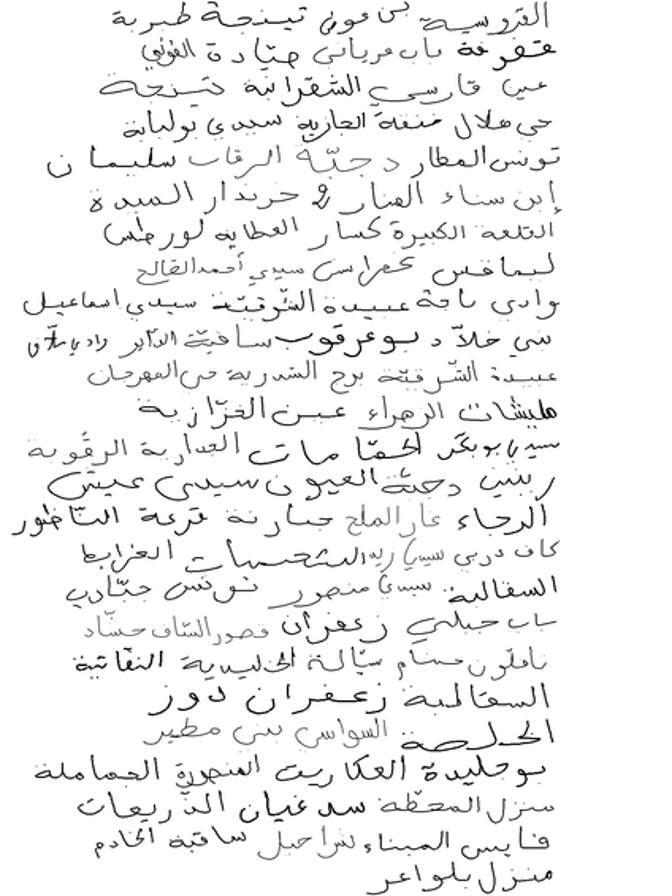 الفروسية بن عون تينجة طبرية
قفرفة باب مرباني صيادة الفوني
عين فارسي الشقرانية تينجة
حي هلال سيدي بولبابة
تونس المطار دجبة الرقاب سليمان
إبن سناء المنار 2 خزندار السيدة
القلعة الكبيرة كسار العطاية لورطس
ليمافس سيدي أحمد الصالح
وادي باجة عبيدة الشرقية سيدي اسماعيل
بني خلاد بوعرقوب ساقية الداير
عبيدة الشرقية برج السدرية حي المهرجان
مليشات الزهراء عين الغزازية
سيدي بوبكر الحمامات الجدارية الرقوبة
زينين دجبة العيون سيدي عيش
الرجاء غار الملح جبارنة قرعة الناظور
كاف دربي سيدي زيد الشحيمات الغرابط
السقالبة سيدي منصور تونس جبادب
باب جبلي زعفران قصور الساف حشاد
نافلون حسام سيالة الخليدية النفاتية
السقالبة زعفران دوز
الخلصة السواسي بني مطير
بوحليدة العكاريت المنصورة الجماملة
منزل المحطة سدغيان الذريعات
قابس الميناء شراحيل ساقية الخادم
منزل بلواعر